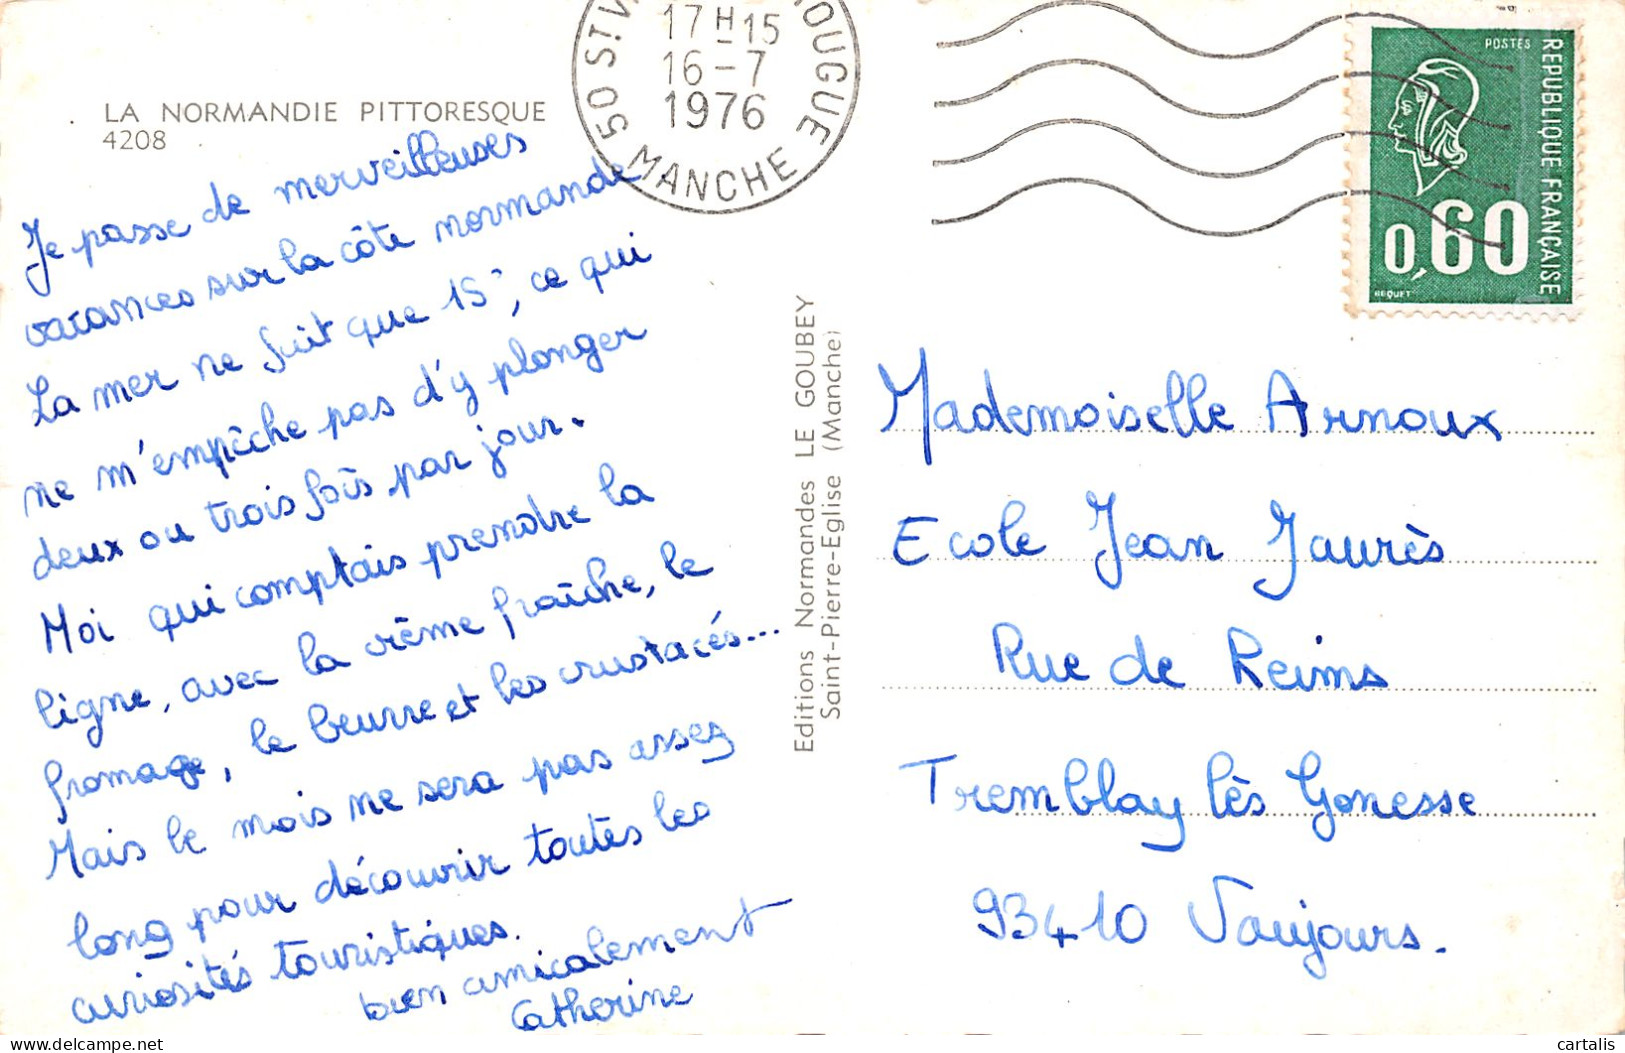 LA NORMANDIE PITTORESQUE
4208
Je passe de merveilleuses
vacances sur la côte normande
La mer ne fait que 15°, ce qui
ne m'empêche pas d'y plonger
deux ou trois fois par jour.
Moi qui comptais prendre la
ligne, avec la crême fraîche, le
fromage, le beurre et les crustacés...
Mais le mois ne sera pas assez
long pour découvrir toutes les
curiosités touristiques.
bien amicalement
Catherine
17H-15
16-7
1976
50 ST.V OUGUE
MANCHE
Editions Normandes LE GOUBEY
Saint-Pierre-Eglise (Manche)
POSTES
REPUBLIQUE FRANÇAISE
0,60
BEQUET
Mademoiselle Arnoux
Ecole Jean Jaurès
Rue de Reims
Tremblay lès Gonesse
93410 Vaujours.
cartalis